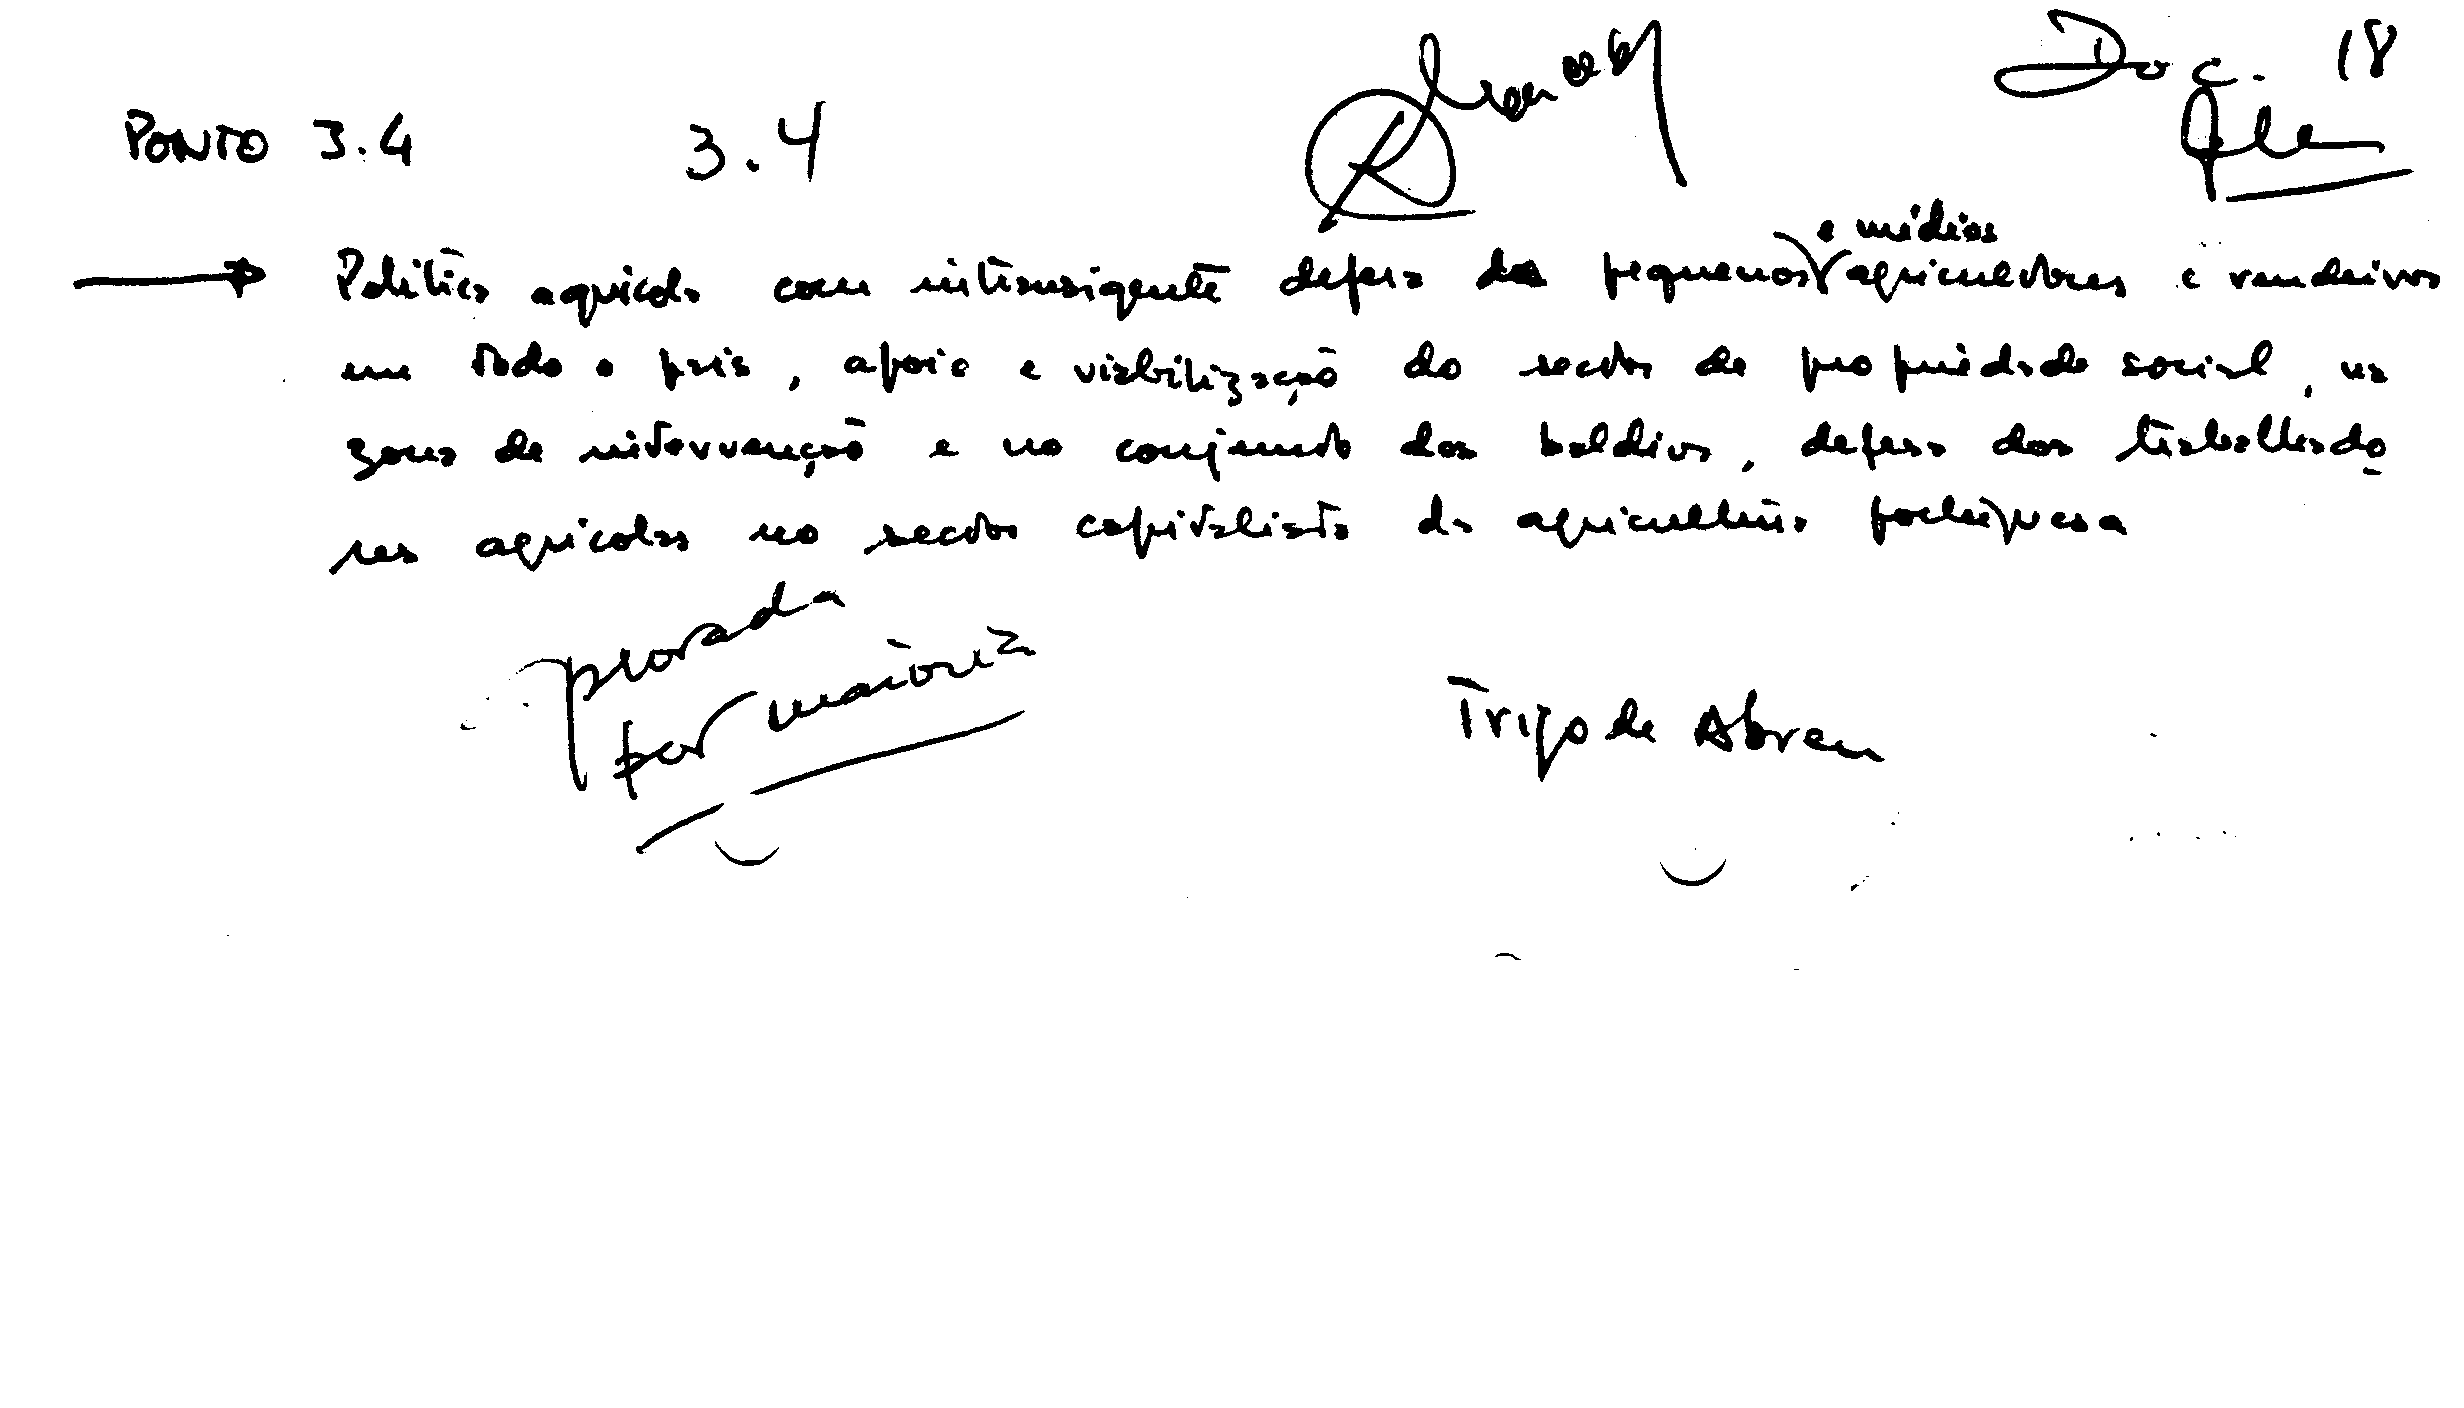 Doc. 18
PONTO 3.4 3.4
e médios
Política agrícola com intransigente defesa dos pequenos agricultores e rendeiros
em todo o país, apoio e viabilização do sector de propriedade social, na
zona de intervenção e no conjunto dos baldios, defesa dos trabalhado
res agrícolas no sector capitalista da agricultura portuguesa
por maioria
Trigo de Abreu